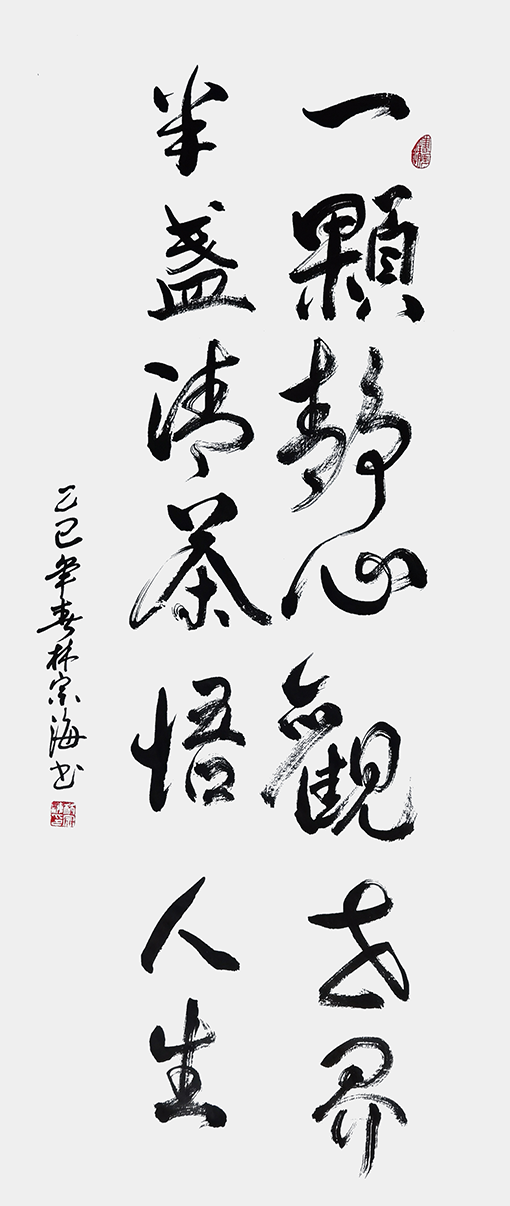 一顆靜心觀世界
半盞清茶悟人生
乙巳年春林宗海书